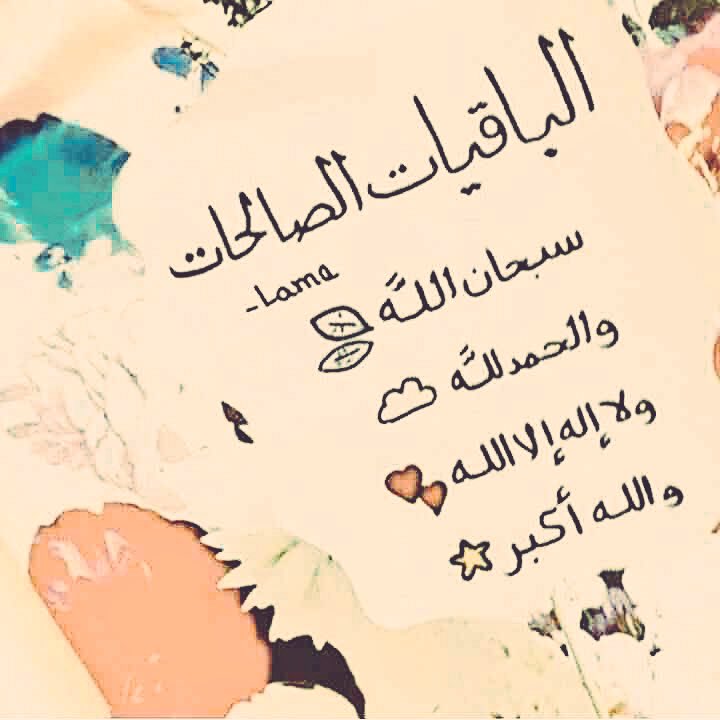 الباقيات الصالحات
-Lama
سبحان اللَّه
والحمد للَّه
ولا إله إلا الله
والله أكبر